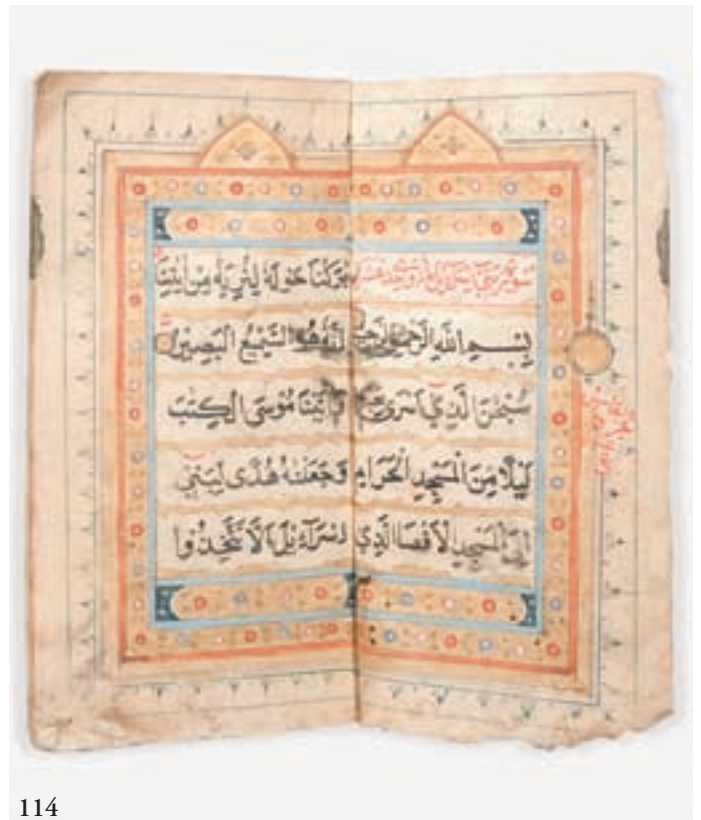 سورة بني اسرائيل
بِسْمِ اللهِ الرَّحْمٰنِ الرَّحِيْمِ
سُبْحٰنَ الَّذِي اَسْرٰى
لَيْلًا مِنَ الْمَسْجِدِ الْحَرَامِ
اِلَى الْمَسْجِدِ الْاَقْصَا الَّذِي
بٰرَكْنَا حَوْلَهُ لِنُرِيَهُ مِنْ اٰيٰتِنَا
اِنَّهُ هُوَ السَّمِيْعُ الْبَصِيْرُ
وَاٰتَيْنَا مُوْسَى الْكِتٰبَ
وَجَعَلْنٰهُ هُدًى لِبَنِي
اِسْرَآءِيْلَ اَلَّا تَتَّخِذُوا
114